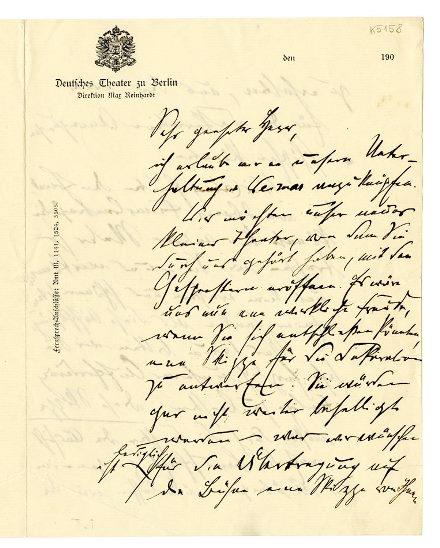 K5158
den 190
Deutsches Theater zu Berlin
Direktion Max Reinhardt
Fernsprech-Anschlüsse: Amt III,
Sehr geehrter Herr,
ich erlaube mir an unsere Unter-
haltung in Weimar anzuknüpfen.
Wir möchten unser neues
kleines Theater, von dem Sie
durch uns gehört haben, mit den
Gespenstern eröffnen. Es wäre
uns nun eine wirkliche Freude,
wenn Sie sich entschließen könnten,
eine Skizze für die Dekoration
zu entwerfen. Sie würden
gar nicht weiter behelligt
werden – was wir wünschen
ist lediglich für die Übertragung auf
die Bühne eine Skizze von Ihnen